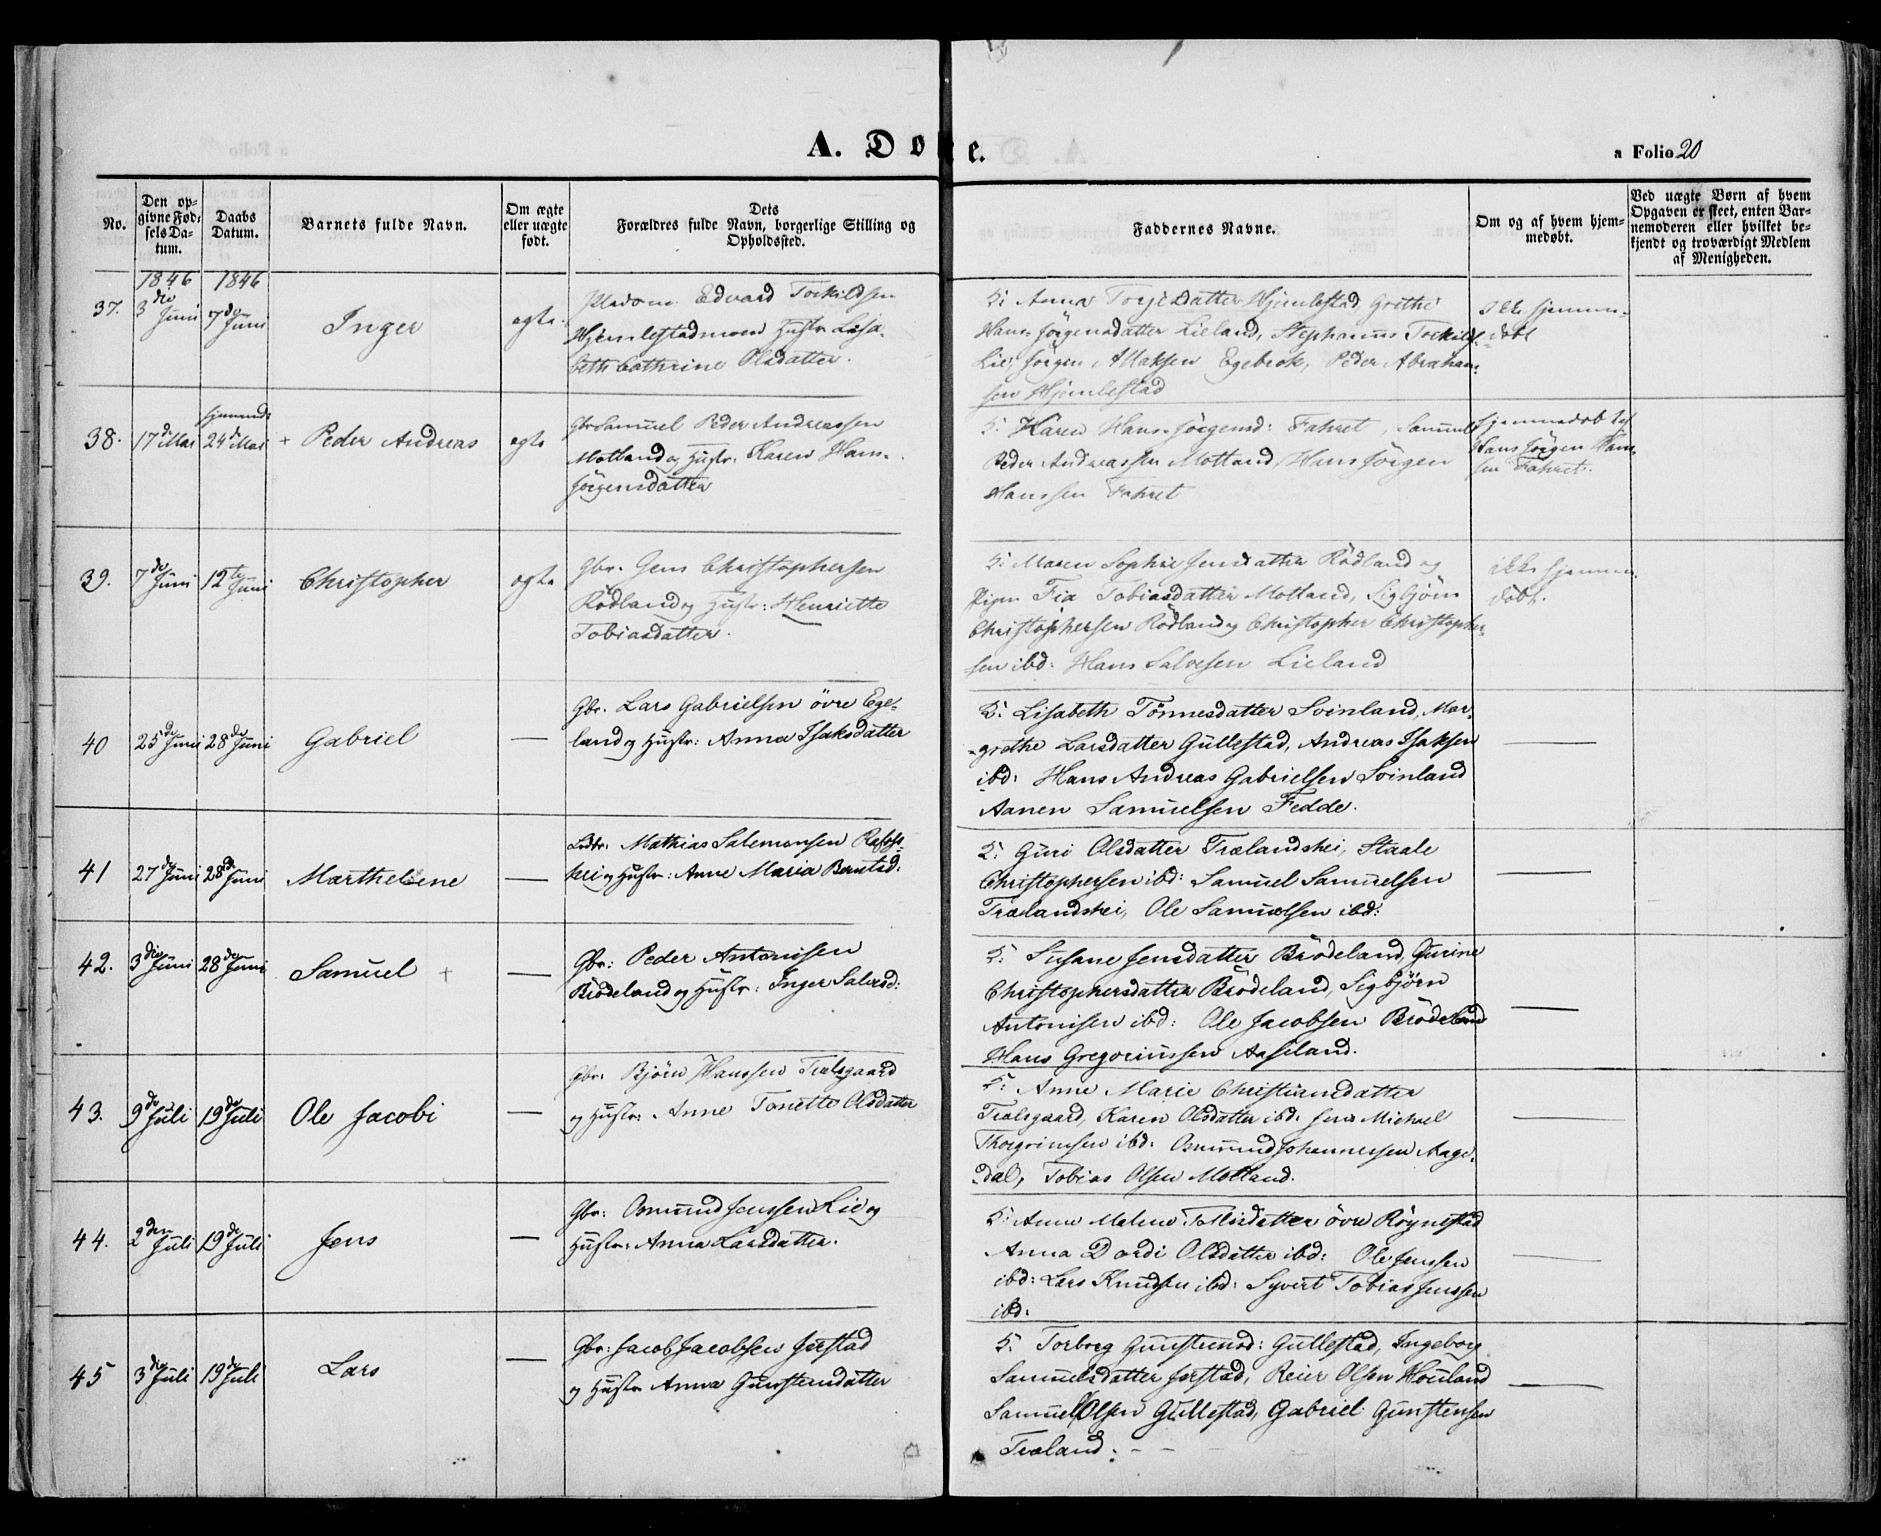 A. Døbte.
a Folio 20
No.
Den opgivne Fødselsdatum.
Daabs Datum.
Barnets fulde Navn.
Om ægte eller uægte født.
Dets Forældres fulde Navn, borgerlige Stilling og Opholdssted.
Faddernes Navne.
Om og af hvem hjemmedøbt.
Ved uægte Børn af hvem Opgaven er skeet, enten Barnemoderen eller hvilket bekjendt og troværdigt Medlem af Menigheden.
1846 1846
37. 3die Juni 7de Juni Inger ægte
Edvard Torkildsen
Hjemlestadmoen Hustr Lisa-
beth Cathrine Olsdatter.
5: Anna Torjesdatter Hjemlestad, Grethe
Hans Jörgensdatter Lieland, Stephanus Torkilds.
Lie, Jörgen Isaksen Egebrok, Peder Abraham-
sen Hjemlestad
Ikke hjemme-
döbt
38. 17de Mai hjemmed: 24de Mai + Peder Andreas ægte
Gbr Samuel Peder Andreassen
Motland og Hustr: Karen Hans-
Jörgensdatter
5: Karen Hans Jörgensd: Fahret, Samuel
Peder Andreassen Motland, Hans Jörgen
Hanssen Fahret
hjemmedöbt af
Hans Jörgen Hans-
sen Fahret.
39. 7de Juni 12te Juni Christopher ægte
Gbr. Jens Christophersen
Rödland og Hustr: Henriette
Tobiasdatter.
5: Maren Sophie Jensdatter Rödland og
Pigen Fia Tobiasdatter Motland, Sigbjörn
Christophersen Rödland og Christopher Christopher-
sen ibd: Hans Salvesen Lieland
ikke hjemme-
döbt.
40 25de Juni 28de Juni Gabriel —
Gbr. Lars Gabrielsen övre Ege-
land og Hustr: Anna Isaksdatter
5: Lisabeth Tönnesdatter Svinland, Mar-
grethe Larsdatter Gullestad, Andreas Isaksen
ibd: Hans Andreas Gabrielsen Svinland
Aanen Samuelsen Fedde.
—
41 27de Juni 28de Juni Marthelene —
Mathias Salemonsen Rafoss-
hei og Hustr: Anne Maria Berntsd:
5: Guri Olsdatter Trælandshei, Staale
Christophersen ibd: Samuel Samuelsen
Trælandshei, Ole Samuelsen ibd:
—
42. 3die Juni 28de Juni Samuel + —
Gbr: Peder Antonisen
Brödeland og Hustr: Inger Salvesd:
5: Susane Jensdatter Brödeland, Gurine
Christophersdatter Brödeland, Sigbjörn
Antonisen ibd: Ole Jacobsen Brödeland
Hans Gregoriussen Aaseland.
—
43. 9de Juli 19de Juli Ole Jacobi —
Gbr: Björn Hanssen Trælsgaard
og Hustr: Anne Tonette Olsdatter
5: Anne Marie Christiansdatter
Trælsgaard, Karen Olsdatter ibd: Jens Michael
Thorgrimsen ibd: Osmund Johannessen Aage-
dal, Tobias Olsen Motland.
—
44. 2den Juli 19de Juli Jens —
Gbr: Osmund Jenssen Lie og
Hustr: Anna Larsdatter.
5: Anne Malene Tollisdatter övre Röynestad
Anna Dordi Olsdatter ibd: Ole Jenssen
ibd: Lars Knudsen ibd: Syvert Tobias Jenssen
ibd:
—
45 3die Juli 19de Juli Lars —
Gbr: Jacob Jacobsen Jerstad
og Hustr Anna Gunstensdatter
5. Torborg Gunstensd: Gullestad, Ingeborg
Samuelsdatter Jerstad, Reier Olsen Houland
Samuel Olsen Gullestad, Gabriel Gunstensen
Træland.
—